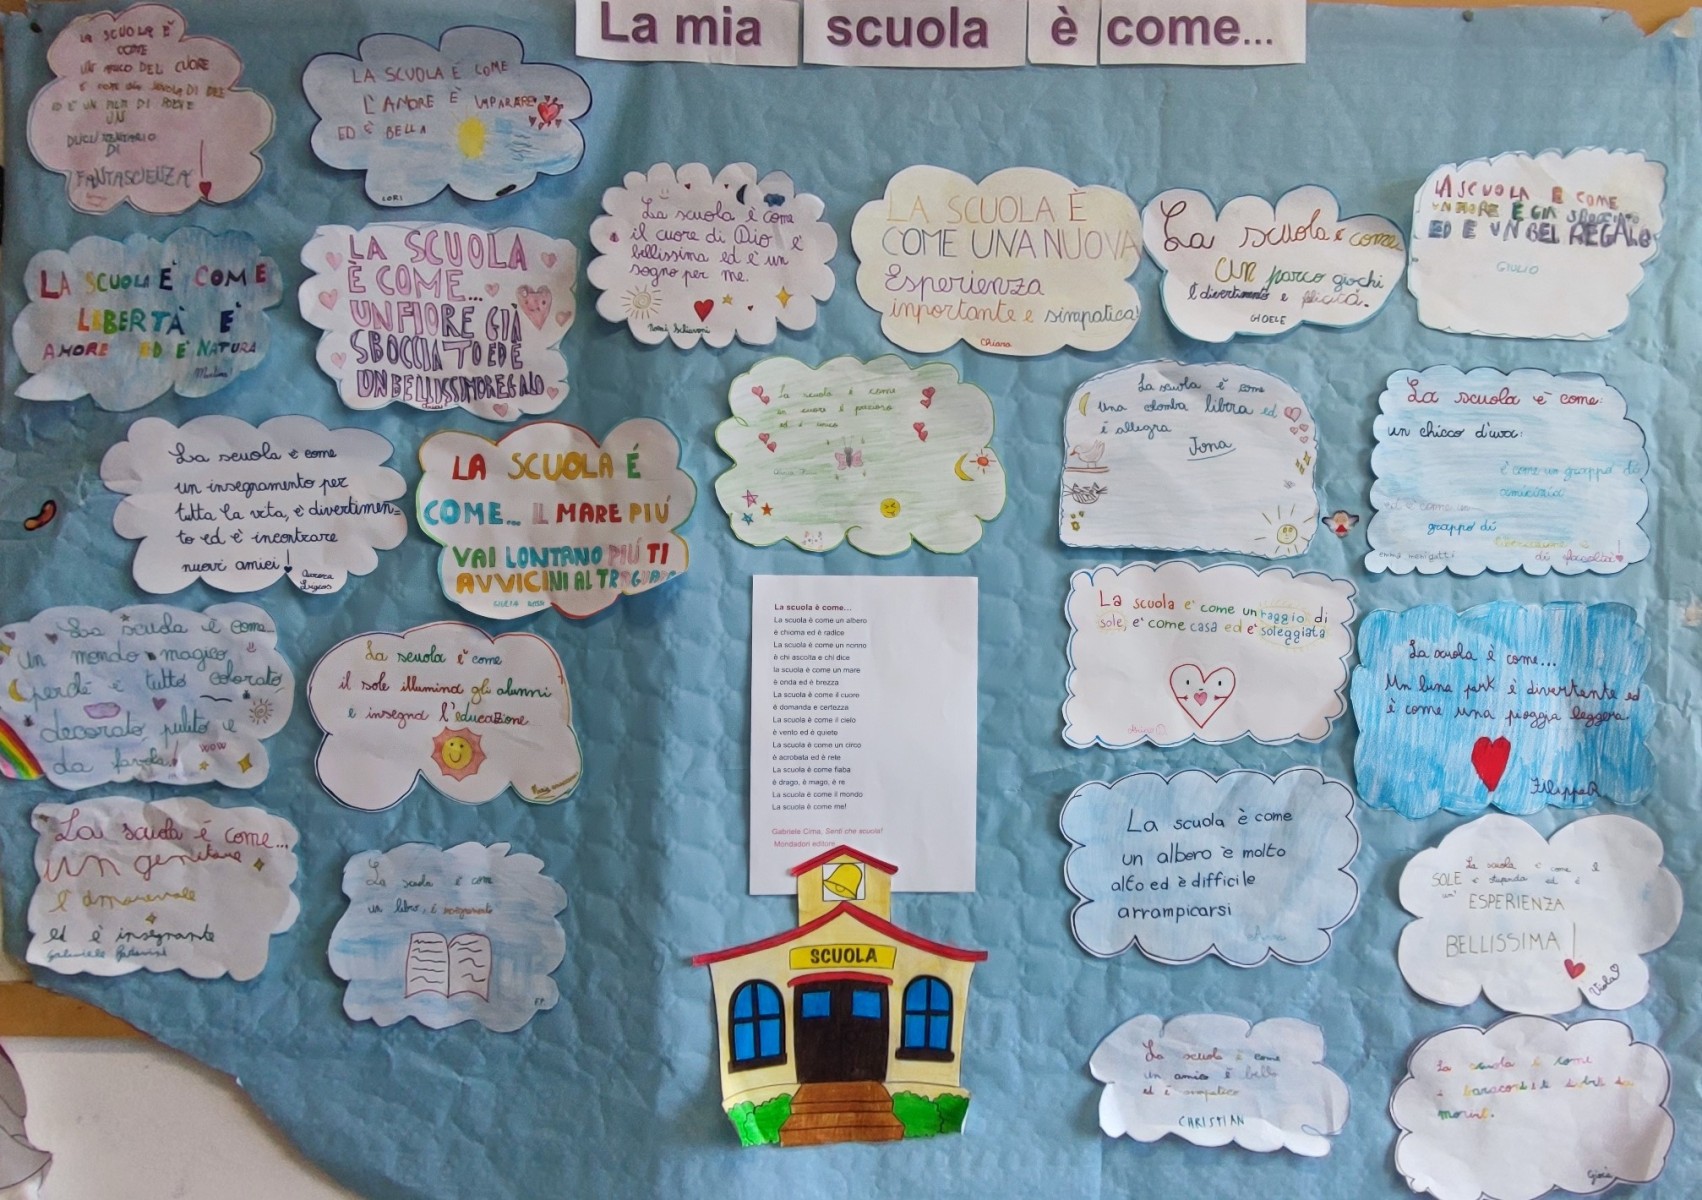 La mia scuola è come...
LA SCUOLA È
COME
UN POCO DEL CUORE
ED È UN
UN
DI
FANTASCIENZA
LA SCUOLA È COME
L'AMORE È IMPARARE
ED È BELLA
LORI
La scuola è come
il cuore di Dio è
bellissima ed è un
sogno per me.
LA SCUOLA È
COME UNA NUOVA
Esperienza
importante e simpatica!
Chiara
La scuola è come
un parco giochi
è divertimento e felicità.
GIOELE
LA SCUOLA È COME
UN FIORE È GIÀ SBOCCIATO
ED È UN BEL REGALO
GIULIO
LA SCUOLA È COME
LIBERTÀ È
AMORE ED È NATURA
LA SCUOLA
È COME...
UN FIORE GIÀ
SBOCCIATO ED È
UN BELLISSIMO REGALO
La scuola è come
un cuore è prezioso
ed è
La scuola è come
una colomba libera ed
è allegra
Jona
La scuola è come:
un chicco d'uva:
è come un grappo di
amicizia
ed è come un
grappo di
di felicità
La scuola è come
un insegnamento per
tutta la vita, è divertimen=
to ed è incontrare
nuovi amici!
Aurora
LA SCUOLA É
COME... IL MARE PIÚ
VAI LONTANO PIÚ TI
AVVICINI AL TRAGUARDO
La scuola è come...
La scuola è come un albero
è chioma ed è radice
La scuola è come un nonno
è chi ascolta e chi dice
la scuola è come un mare
è onda ed è brezza
La scuola è come il cuore
è domanda e certezza
La scuola è come il cielo
è vento ed è quiete
La scuola è come un circo
è acrobata ed è rete
La scuola è come fiaba
è drago, è mago, è re
La scuola è come il mondo
La scuola è come me!
Gabriele Cima, Senti che scuola!
Mondadori editore
La scuola e' come un raggio di
sole, e' come casa ed e' soleggiata
La scuola è come...
Un luna park è divertente ed
è come una pioggia leggera.
FilippoR
La scuola è come...
un mondo magico
perché è tutto colorato
decorato pulito e
da favola!
WOW
La scuola è come
il sole illumina gli alunni
e insegna l'educazione
La scuola è come...
un genitore
è amorevole
ed è insegnante
La scuola è come
un libro, è insegnamento
La scuola è come
un albero è molto
alto ed è difficile
arrampicarsi
La scuola è come il
SOLE è stupenda ed è
un' ESPERIENZA
BELLISSIMA!
Viola
SCUOLA
La scuola è come
un amico è bello
ed è simpatico
CHRISTIAN
La scuola è come